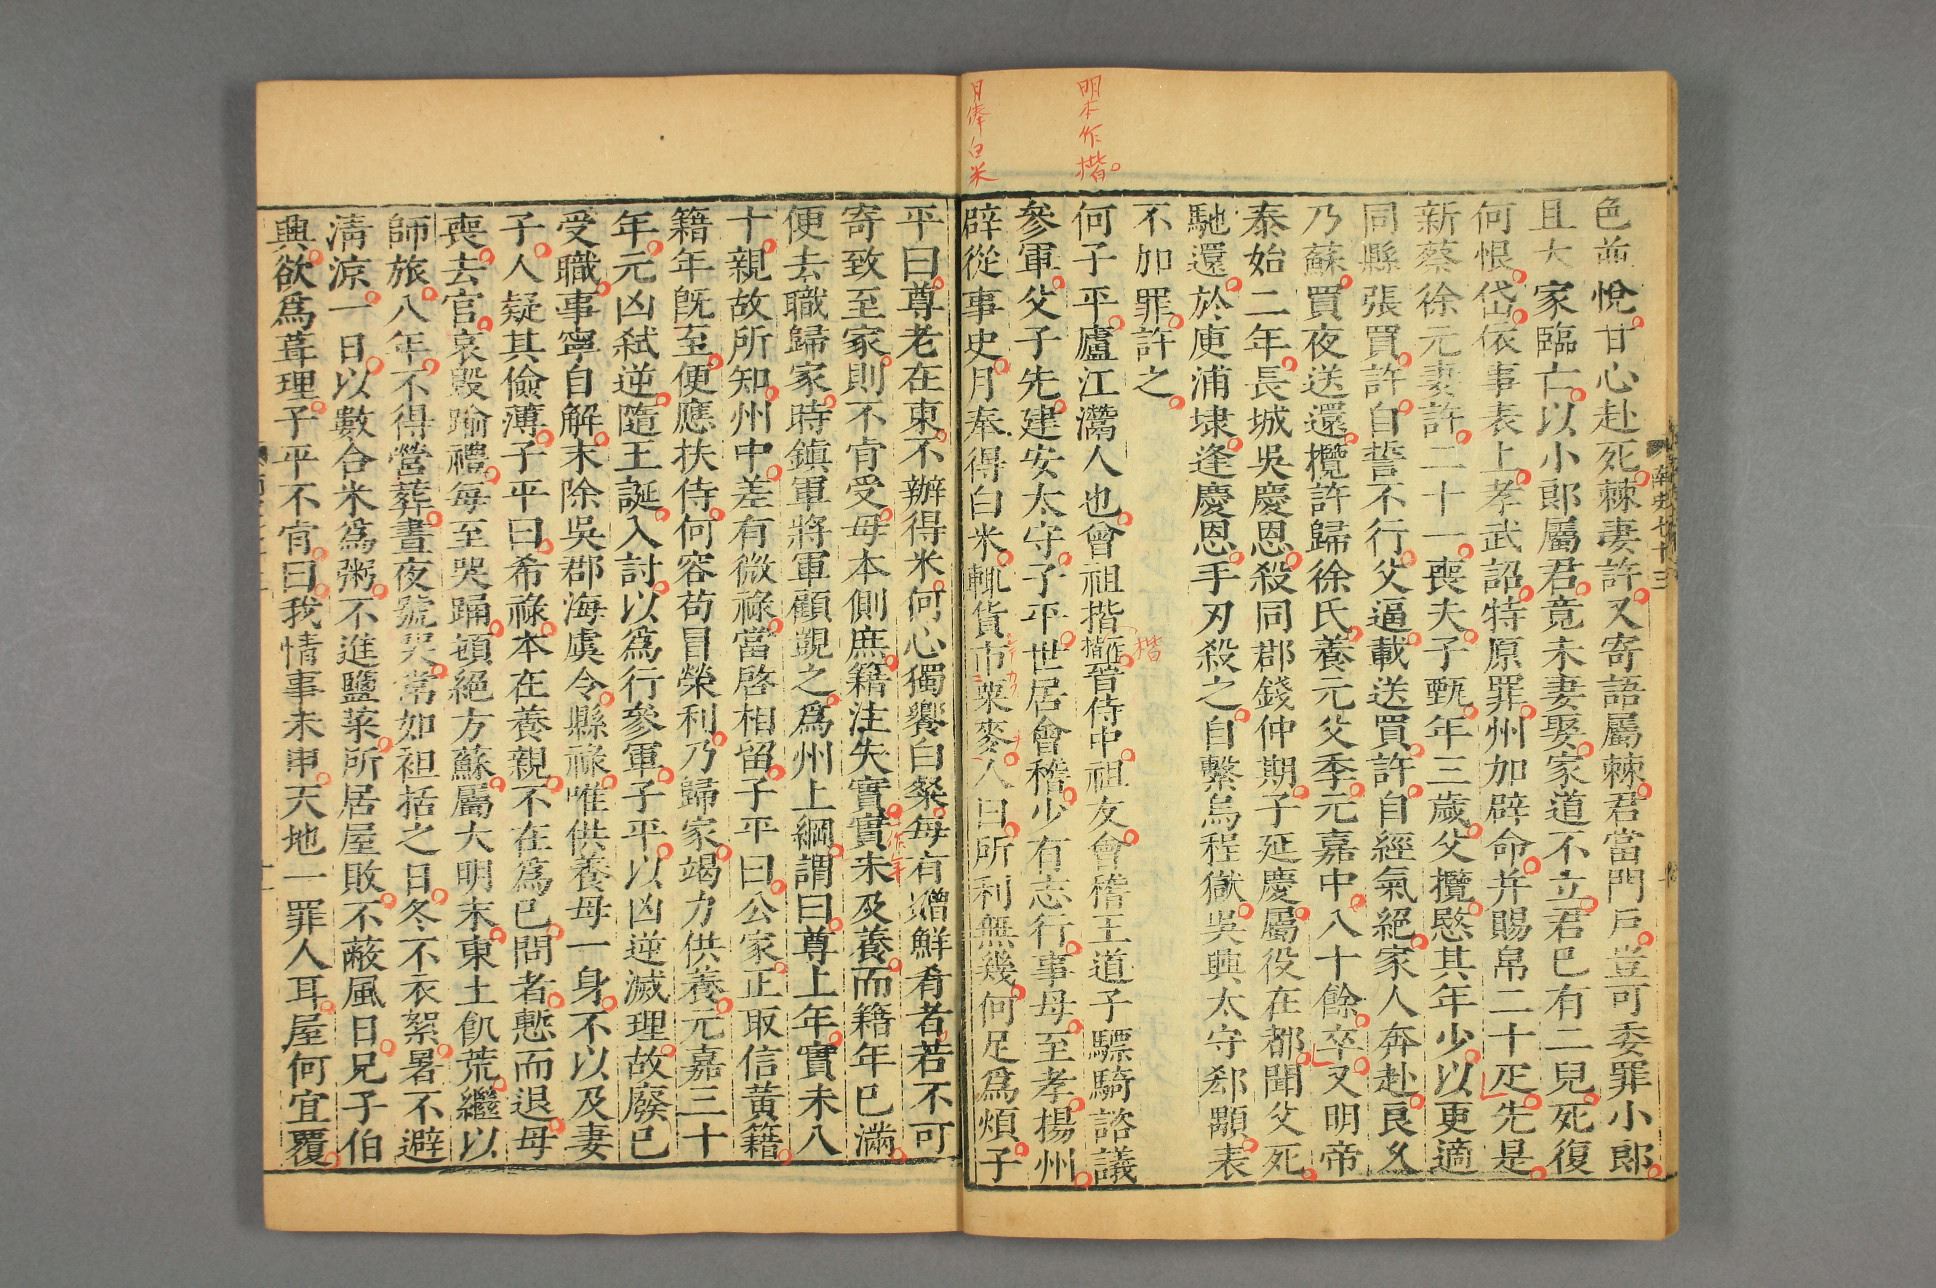 明本作揩
月俸白米
色並悅甘心赴死棘妻許又寄語屬棘君當門戶豈可委罪小郎
且大家臨亡以小郎屬君竟未妻娶家道不立君巳有二兒死復
何恨岱依事表上孝武詔特原罪州加辟命幷賜帛二十疋先是
新蔡徐元妻許二十一喪夫子甄年三歲父攬愍其年少以更適
同縣張買許自誓不行父逼載送買許自經氣絕家人奔赴良久
乃蘇買夜送還攬許歸徐氏養元父季元嘉中八十餘卒又明帝
泰始二年長城吳慶恩殺同郡錢仲期子延慶屬役在都聞父死
馳還於庚浦埭逢慶恩手刃殺之自繫烏程獄吳興太守郄顒表
不加罪許之
何子平廬江灊人也曾祖揩晉侍中祖友會稽王道子驃騎諮議
參軍父子先建安太守子平世居會稽少有志行事母至孝揚州
辟從事史月奉得白米輒貨市粟麥人曰所利無幾何足爲煩子
平曰尊老在東不辦得米何心獨饗白粲每有贈鮮肴者若不可
寄致至家則不肯受母本側庶籍注失實實未及養而籍年巳滿
便去職歸家時鎮軍將軍顧覬之爲州上綱謂曰尊上年實未八
十親故所知州中差有微祿當啓相留子平曰公家正取信黃籍
籍年旣至便應扶侍何容苟冒榮利乃歸家竭力供養元嘉三十
年元凶弑逆隨王誕入討以爲行參軍子平以凶逆滅理故廢巳
受職事寧自解末除吳郡海虞令縣祿唯供養母一身不以及妻
子人疑其儉薄子平曰希祿本在養親不在爲巳問者慙而退母
喪去官哀毀踰禮每至哭踊頓絕方蘇屬大明末東土飢荒繼以
師旅八年不得營葬晝夜號哭常如袒括之日冬不衣絮暑不避
淸涼一日以數合米爲粥不進鹽菜所居屋敗不蔽風日兄子伯
興欲爲葺理子平不肯曰我情事未申天地一罪人耳屋何宜覆